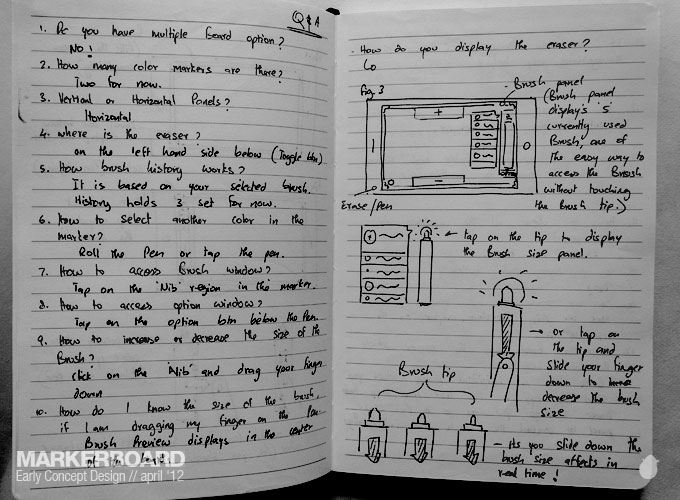 Q & A
1. Do you have multiple board option?
No!
2. How many color markers are there?
Two for now.
3. Vertical or Horizontal Panels?
Horizontal
4. where is the eraser?
on the left hand side below (Toggle btn)
5. How brush history works?
It is based on your selected brush.
History holds 3 set for now.
6. How to select another color in the
marker?
Roll the Pen or tap the pen.
7. How to access Brush window?
Tap on the 'Nib' region in the marker.
8. How to access option window?
Tap on the option btn below the Pen.
9. How to increase or decrease the size of the
Brush?
click on the 'Nib' and drag your finger
down
10. How do I know the size of the brush,
if I am dragging my finger on the Pen
Brush Preview displays in the center
of the
MARKERBOARD
Early Concept Design // april '12
How do you display the eraser?
Fig. 3
Brush panel
(Brush panel
display's '5'
currently used
Brush, one of
the easy way to
access the Brush
without touching
the Brush tip.)
Erase/Pen
← tap on the tip to display
the Brush size panel.
→ or tap on
the tip and
slide your finger
down to
decrease the brush
size
Brush tip
- As you slide down the
brush size affects in
real time!